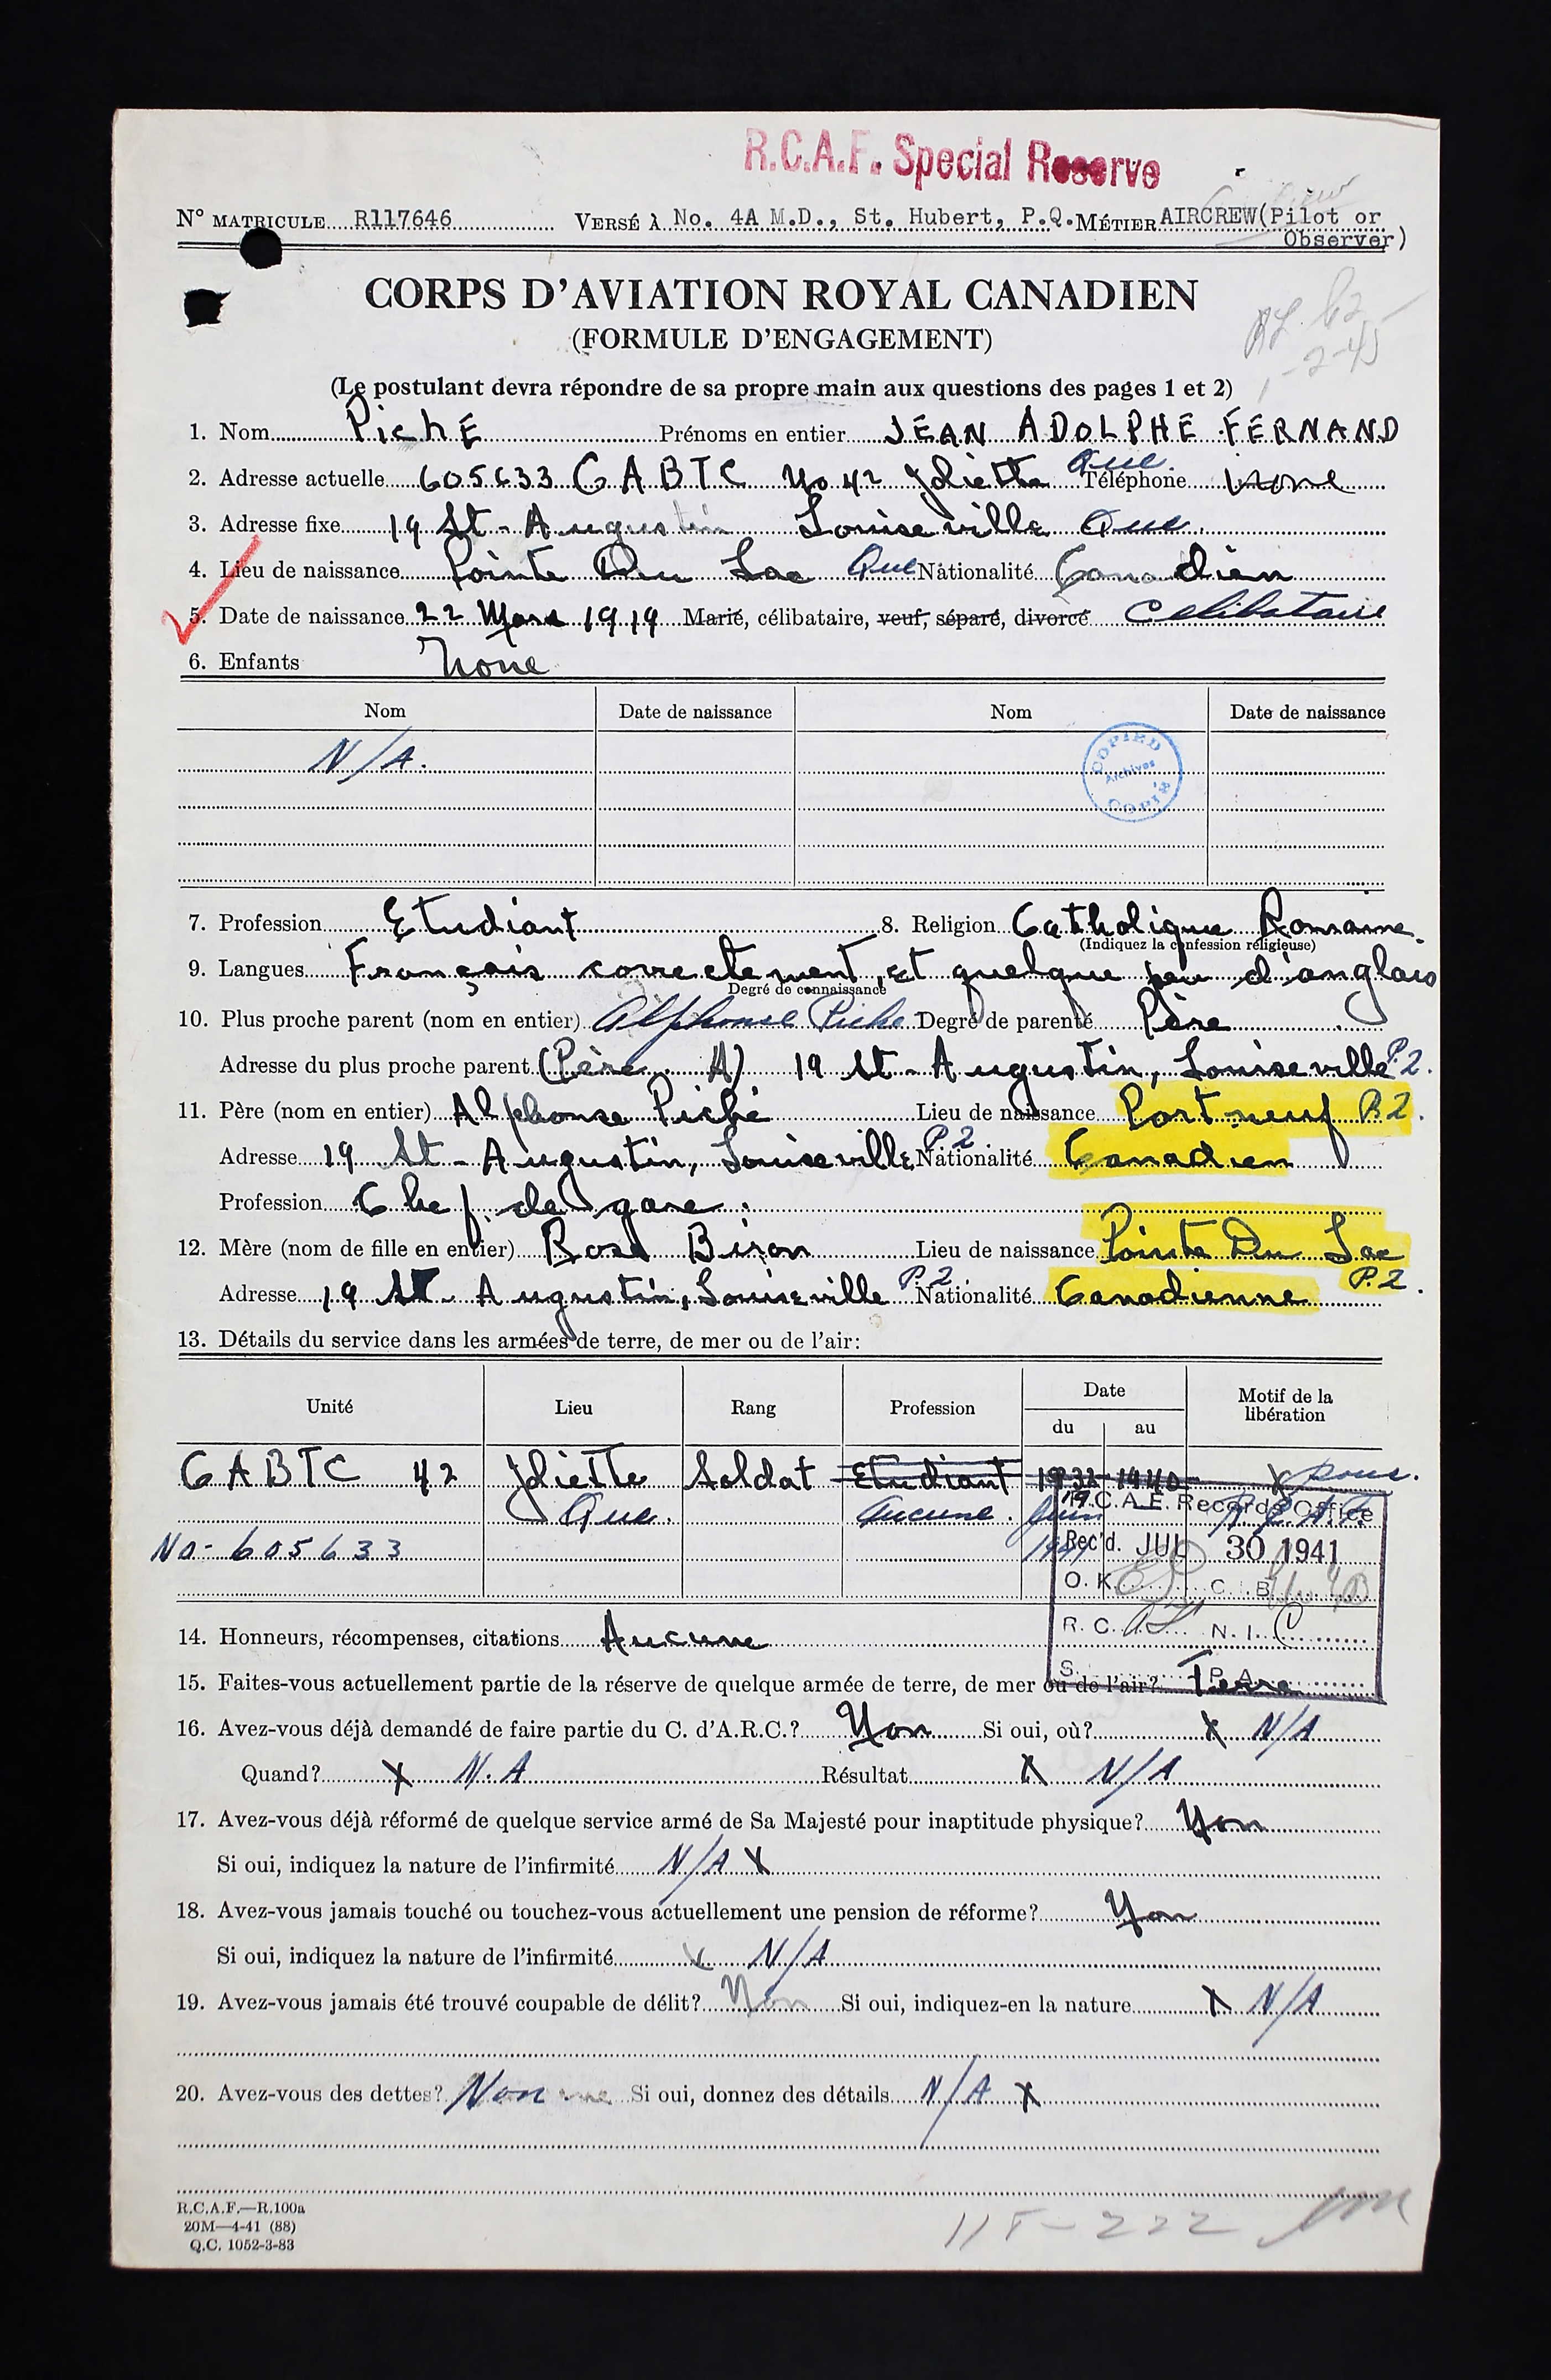 R.C.A.F. Special Reserve
N° MATRICULE R117646 VERSÉ À No. 4A M.D., St. Hubert, P.Q. MÉTIER AIRCREW(Pilot or
Observer)
CORPS D'AVIATION ROYAL CANADIEN
(FORMULE D'ENGAGEMENT)
(Le postulant devra répondre de sa propre main aux questions des pages 1 et 2)
1. Nom Piché Prénoms en entier JEAN ADOLPHE FERNAND
2. Adresse actuelle 605633 CABTC No 42 Joliette Que. Téléphone None
3. Adresse fixe 19 St-Augustin Louiseville Que.
4. Lieu de naissance Pointe Du Lac Que Nationalité Canadien
5. Date de naissance 22 Mars 1919 Marié, célibataire, veuf, séparé, divorcé Celibataire
6. Enfants None
Nom Date de naissance Nom Date de naissance
N/A.
COPIED Archives COPIÉ
7. Profession Etudiant 8. Religion Catholique Romaine.
(Indiquez la confession religieuse)
9. Langues Français correctement, et quelque peu d'anglais
Degré de connaissance
10. Plus proche parent (nom en entier) Alphonse Piche Degré de parenté Père
Adresse du plus proche parent (Père A) 19 St-Augustin, Louiseville P.2.
11. Père (nom en entier) Alphonse Piché Lieu de naissance Portneuf P.2.
Adresse 19 St-Augustin, Louiseville P.2. Nationalité Canadien
Profession Chef de gare
12. Mère (nom de fille en entier) Rose Biron Lieu de naissance Pointe Du Lac
Adresse 19 St-Augustin, Louiseville P.2. Nationalité Canadienne P.2.
13. Détails du service dans les armées de terre, de mer ou de l'air:
Unité Lieu Rang Profession Date Motif de la libération
du au
CABTC 42 Joliette Soldat Etudiant 1932 1940 X pour.
Que. Aucune. 19 Juin
No- 605633 1941
R.C.A.F. Records Office
Rec'd. JUL 30 1941
O.K. C.I.B.
R.C. N.I. C
S. P.A.
14. Honneurs, récompenses, citations Aucune
15. Faites-vous actuellement partie de la réserve de quelque armée de terre, de mer ou de l'air? Terre
16. Avez-vous déjà demandé de faire partie du C. d'A.R.C.? Non Si oui, où? X N/A
Quand? X N.A Résultat X N/A
17. Avez-vous déjà réformé de quelque service armé de Sa Majesté pour inaptitude physique? Non
Si oui, indiquez la nature de l'infirmité N/A X
18. Avez-vous jamais touché ou touchez-vous actuellement une pension de réforme? Non
Si oui, indiquez la nature de l'infirmité X N/A
19. Avez-vous jamais été trouvé coupable de délit? Non Si oui, indiquez-en la nature X N/A
20. Avez-vous des dettes? Non Si oui, donnez des détails N/A X
R.C.A.F.—R.100a
20M—4-41 (88)
Q.C. 1052-3-83